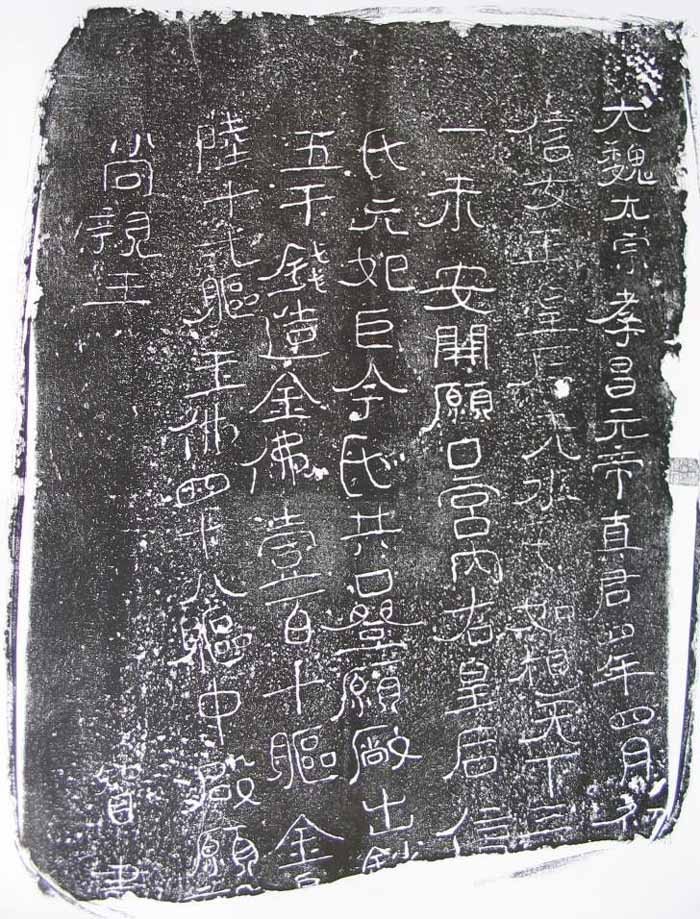 大魏太宗孝昌元帝真君年四月
信女正皇后元如想天下
一未安開願口宮內右皇后信
氏元妃巨令氏共口登願廠出
五千錢造金佛壹百十軀金
陸十軀玉佛四十八軀中啟願
尚親王書